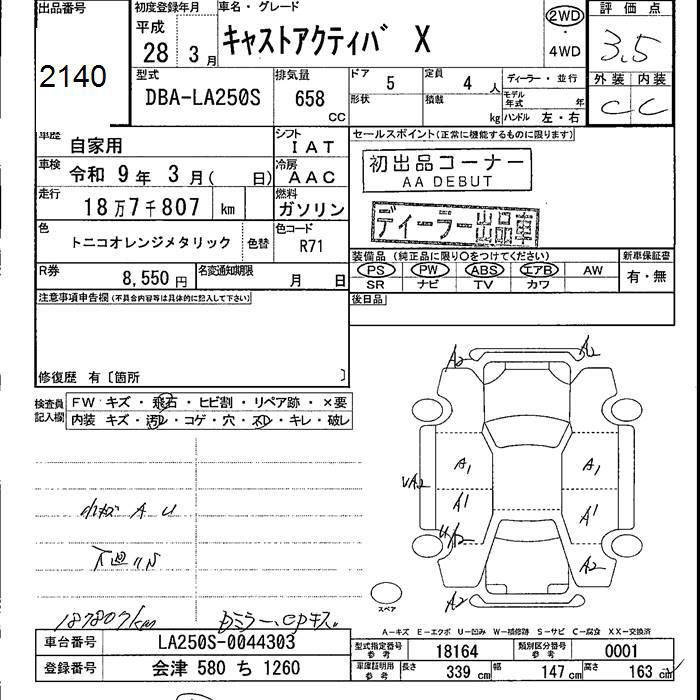 出品番号
2140
初度登録年月
平成
28 3 月
車名・グレード
キャストアクティバ X
2WD
・
4WD
評価点
3.5
外装 内装
C C
型式
DBA-LA250S
排気量
658
CC
ドア 5
定員 4 人
ディーラー・並行
形状
積載 kg
モデル年式 年
ハンドル 左・右
車歴 自家用
シフト IAT
車検 令和 9 年 3 月( 日)
冷房 AAC
走行 18万7千807 km
燃料 ガソリン
色 トニコオレンジメタリック 色替
色コード R71
R券 8,550 円
名変通知期限 月 日
セールスポイント(正常に機能するものに限ります)
初出品コーナー
AA DEBUT
ディーラー出品車
装備品(純正品に限り○をつけてください)
PS PW ABS エアB AW
SR ナビ TV カワ
新車保証書
有・無
後日品
注意事項申告欄(不具合内容等は具体的に記入して下さい)
修復歴 有〔箇所 〕
検査員記入欄
FW キズ・飛石・ヒビ割・リペア跡・×要
内装 キズ・汚レ・コゲ・穴・スレ・キレ・破レ
小キズ A U
下廻りS
187807km
A2
A2
A1
A1
A1
A1
A2
A2
スペア
A-キズ E-エクボ U-凹み W-補修跡 S-サビ C-腐食 XX-交換済
車台番号 LA250S-0044303
登録番号 会津 580 ち 1260
型式指定番号 参考 18164
類別区分番号 参考 0001
車庫証明用 参考 長さ 339 cm 幅 147 cm 高さ 163 cm